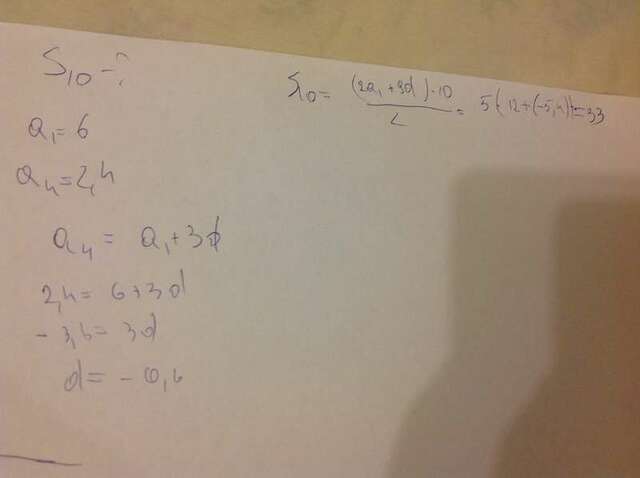 S₁₀ - ?
a₁ = 6
a₄ = 2,4
a₄ = a₁ + 3d
2,4 = 6 + 3d
- 3,6 = 3d
d = - 0,6
S₁₀ = (2a₁ + 9d) · 10 / 2 = 5 (12 + (-5,4)) = 33